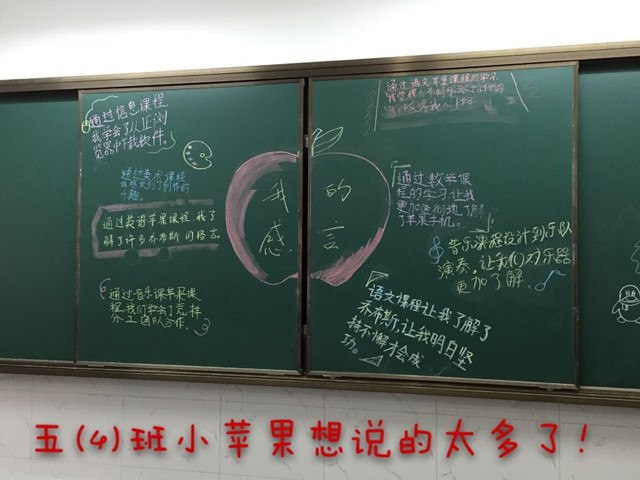 通过信息课程
我学会了从IE浏
览器中下载软件。
通过美术课程
我感受到了创作的
乐趣。
通过英语苹果课程,我了
解了许多乔布斯的格言。
通过音乐课苹果课
程,我们学会了怎样
分工团队合作。
我的
感言
通过语文苹果课程的学习
通过数学课
程的学习,让我
更加深刻地了解
了苹果手机。
音乐课程设计到乐队
演奏,让我们对乐器
更加了解。
语文课程让我了解了
乔布斯,让我明白坚
持不懈才会成
功。
五(4)班小苹果想说的太多了!